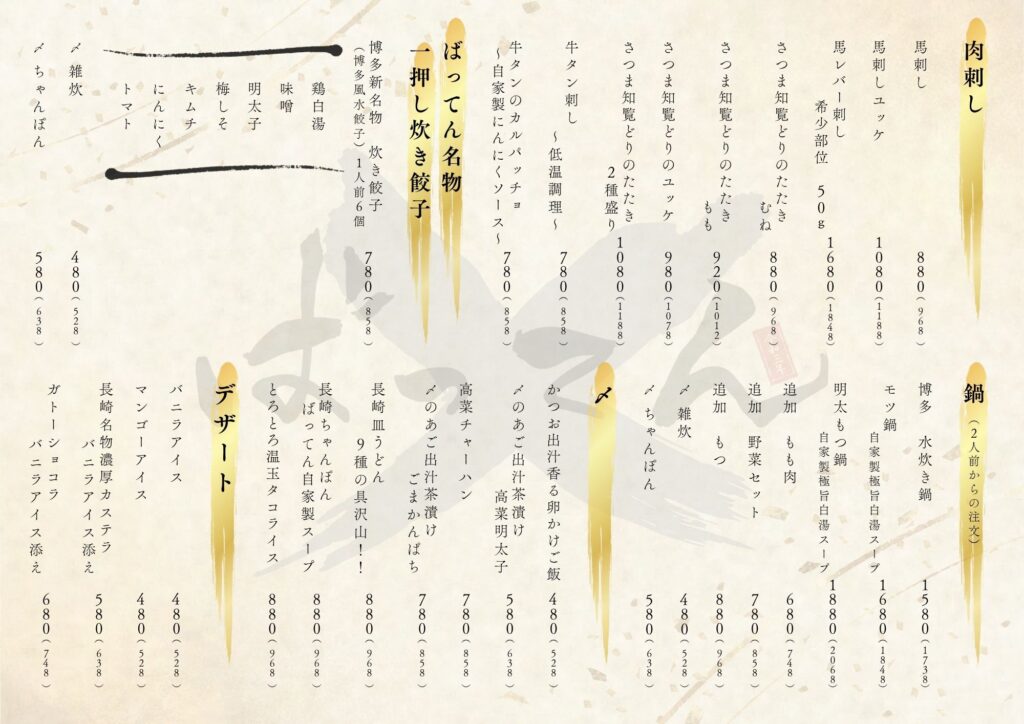 肉刺し
馬刺し
880（968）
馬刺しユッケ
1080（1188）
馬レバー刺し
希少部位 50g
1680（1848）
さつま知覧どりのたたき
むね
880（968）
さつま知覧どりのたたき
もも
920（1012）
さつま知覧どりのユッケ
980（1078）
さつま知覧どりのたたき
2種盛り
1080（1188）
牛タン刺し
～低温調理～
780（858）
牛タンのカルパッチョ
～自家製にんにくソース～
780（858）
ばってん名物
一押し炊き餃子
博多新名物 炊き餃子
（博多風水餃子）1人前6個
780（858）
鶏白湯
味噌
明太子
梅しそ
キムチ
にんにく
トマト
〆 雑炊
480（528）
〆 ちゃんぽん
580（638）
鍋（2人前からの注文）
博多 水炊き鍋
1580（1738）
モツ鍋
自家製極旨白湯スープ
1680（1848）
明太もつ鍋
自家製極旨白湯スープ
1880（2068）
追加 もも肉
680（748）
追加 野菜セット
780（858）
追加 もつ
880（968）
〆 雑炊
480（528）
〆 ちゃんぽん
580（638）
〆
かつお出汁香る卵かけご飯
480（528）
〆のあご出汁茶漬け
高菜明太子
580（638）
高菜チャーハン
780（858）
〆のあご出汁茶漬け
ごまかんぱち
780（858）
長崎皿うどん
9種の具沢山！！
880（968）
長崎ちゃんぽん
ばってん自家製スープ
880（968）
とろとろ温玉タコライス
880（968）
デザート
バニラアイス
480（528）
マンゴーアイス
480（528）
長崎名物濃厚カステラ
バニラアイス添え
580（638）
ガトーショコラ
バニラアイス添え
680（748）
ばってん